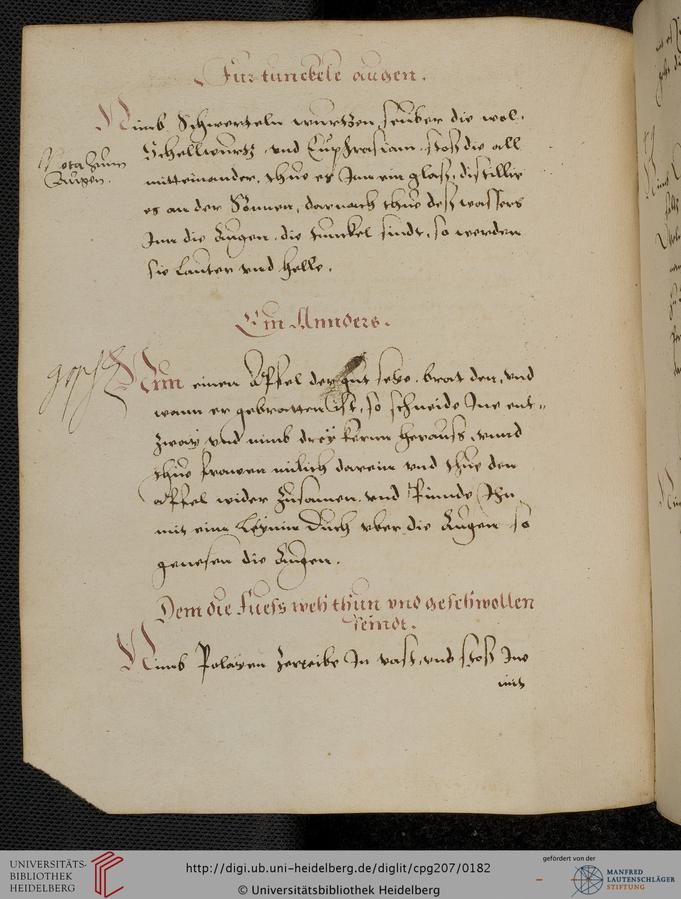 Fur tunckele augen.
Nimb Schwerteln wurtzen, seuber die wol,
Schellwurtz, vnd Euphrasiam, stoß die all
Nota zum
Augen.
mitteinander, thue es Inn ein glaß, distillir
es an der Sonnen, darnach thue deß wassers
Inn die Augen, die tunckel sindt, so werden
sie lauter vnd helle.
Ein Annders.
Nim einen Apffel der gut seye, brat den, vnd
wann er gebratten ist, so schneide Ine ent„
zway vnd nimb drey kernn herauss, vnnd
thue frawen milich darein vnd thue den
apffel wider zusamen, vnd Pinnde Ihn
mit einn leynin Duch vber die Augen so
genesen die Augen.
Dem die Fuess weh thun vnd geschwollen
seindt.
Nimb Polayen zerreibe In vast, vnd stoß Ine
mit
UNIVERSITÄTS-
BIBLIOTHEK
HEIDELBERG
http://digi.ub.uni-heidelberg.de/diglit/cpg207/0182
© Universitätsbibliothek Heidelberg
gefördert von der
MANFRED
LAUTENSCHLÄGER
STIFTUNG